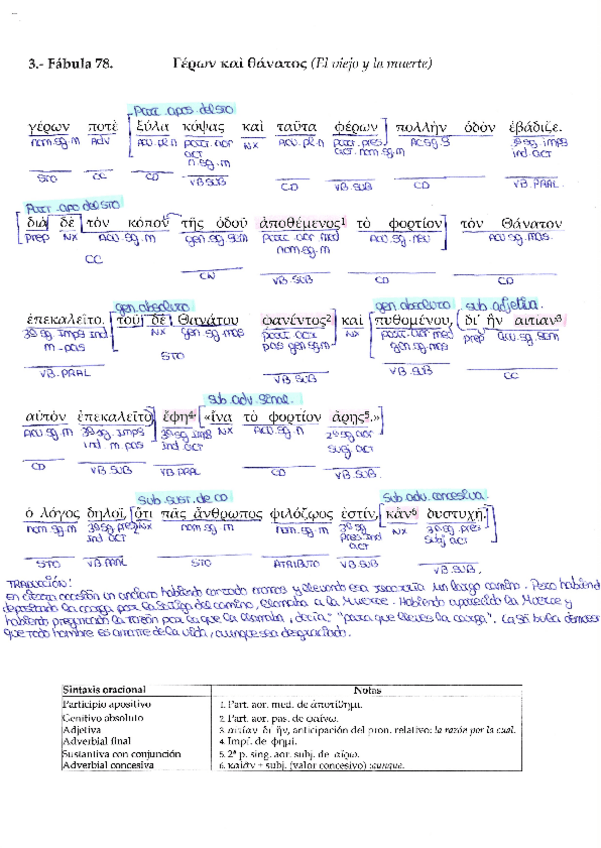 3.- Fábula 78. Γέρων καὶ θάνατος (El viejo y la muerte)
Part. apos. del STO
γέρων ποτὲ [ξύλα κόψας καὶ ταῦτα φέρων] πολλὴν ὁδὸν ἐβάδιζε.
nom.sg.m Adv Acu.pl.n part.aor NX Acu.pl.n part.pres. Ac.sg.f 3ª sg. impf
act act. nom.sg.m ind. act
n.sg.m
STO CC CD VB SUB CD VB. SUB CD VB. PRAL.
Part. apo del STO
διὰ δὲ τὸν κόπον τῆς ὁδοῦ ἀποθέμενος¹ τὸ φορτίον τὸν Θάνατον
prep NX Acu.sg.m gen.sg.fem partc aor med Acu.sg.neu Acu.sg.mas.
nom.sg.m
CC CN VB. SUB CD CD
gen. absoluto gen. absoluto sub adjetiva.
ἐπεκαλεῖτο. [τοῦ δὲ Θανάτου φανέντος²] καὶ [πυθομένου, [δι᾽ ἣν αἰτίαν³
3ª sg impf ind. NX gen sg mas part. aor NX part. aor med prep Acu.sg.fem
m-pas pas gen sg m gen.sg.mas
STO
VB. PRAL VB SUB VB. SUB CC
sub adv. final.
αὐτὸν ἐπεκαλεῖτο] ἔφη⁴ [«ἵνα τὸ φορτίον ἄρῃς⁵.»]
Acu sg m 3ª sg. impf 3ª sg impf NX Acu.sg n 2ª sg aor
ind m.pas ind act subj act
CD VB. SUB VB PRAL CD VB. SUB.
sub. sust. de CD sub adv. concesiva.
ὁ λόγος δηλοῖ, [ὅτι πᾶς ἄνθρωπος φιλόζῳος ἐστίν, [κἂν⁶ δυστυχῇ.]
nom sg m 3ª sg pres NX nom.sg.m nom.sg.m 3ª sg NX 3ª sg. pres
ind act pres ind act subj act
STO VB PRAL STO ATRIBUTO VB. SUB VB. SUB.
TRADUCCIÓN:
En cierta ocasión un anciano habiendo cortado troncos y llevando esa recorría un largo camino. Pero habiendo
depositado la carga por la fatiga del camino, llamaba a la Muerte. Habiendo aparecido la Muerte y
habiendo preguntado la razón por la que la llamaba, decía: "para que lleves la carga". La fábula demuestra
que todo hombre es amante de la vida, aunque sea desgraciado.
Sintaxis oracional Notas
Participio apositivo 1. Part. aor. med. de ἀποτίθημι.
Genitivo absoluto 2. Part. aor. pas. de φαίνω.
Adjetiva 3. αἰτίαν δι᾽ ἥν, anticipación del pron. relativo: la razón por la cual.
Adverbial final 4. Impf. de φημί.
Sustantiva con conjunción 5. 2ª p. sing. aor. subj. de αἴρω.
Adverbial concesiva 6. καὶ ἄν + subj. (valor concesivo) :aunque.